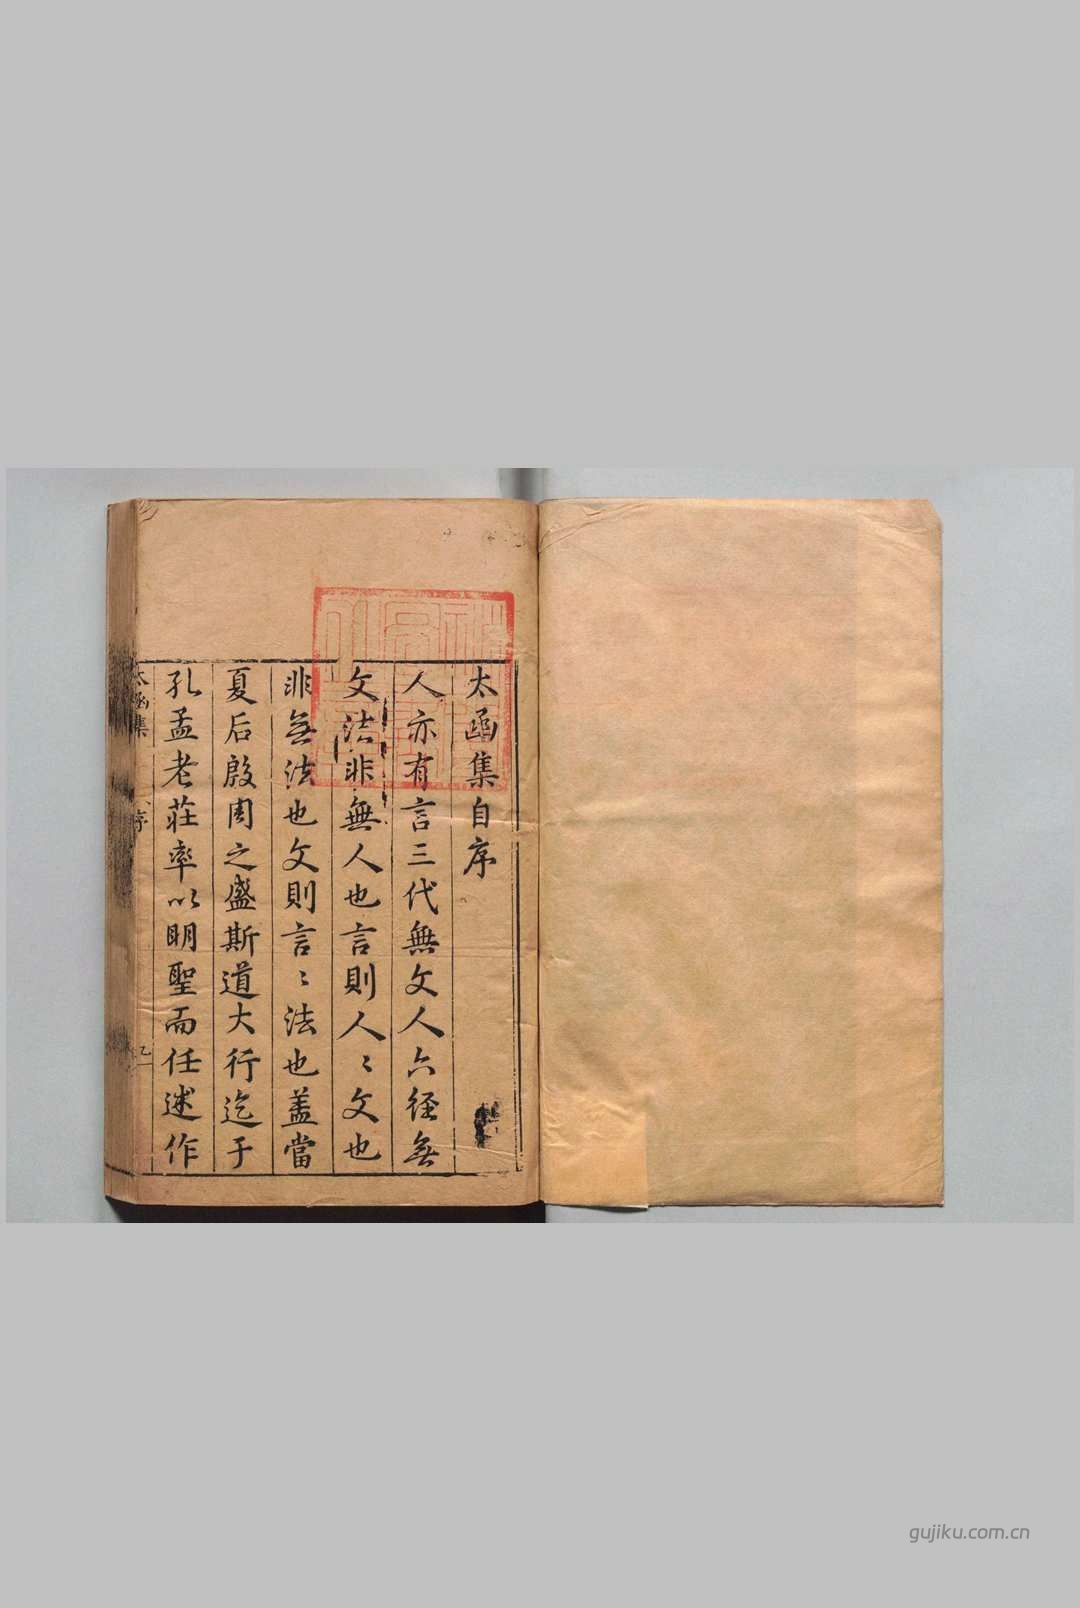 太函集自序
人亦有言三代無文人六径無
文法非無人也言則人〻文也
非無法也文則言〻法也盖當
夏后殷周之盛斯道大行迄于
孔孟老莊率以明聖而任述作
太函集
序
gujiku.com.cn